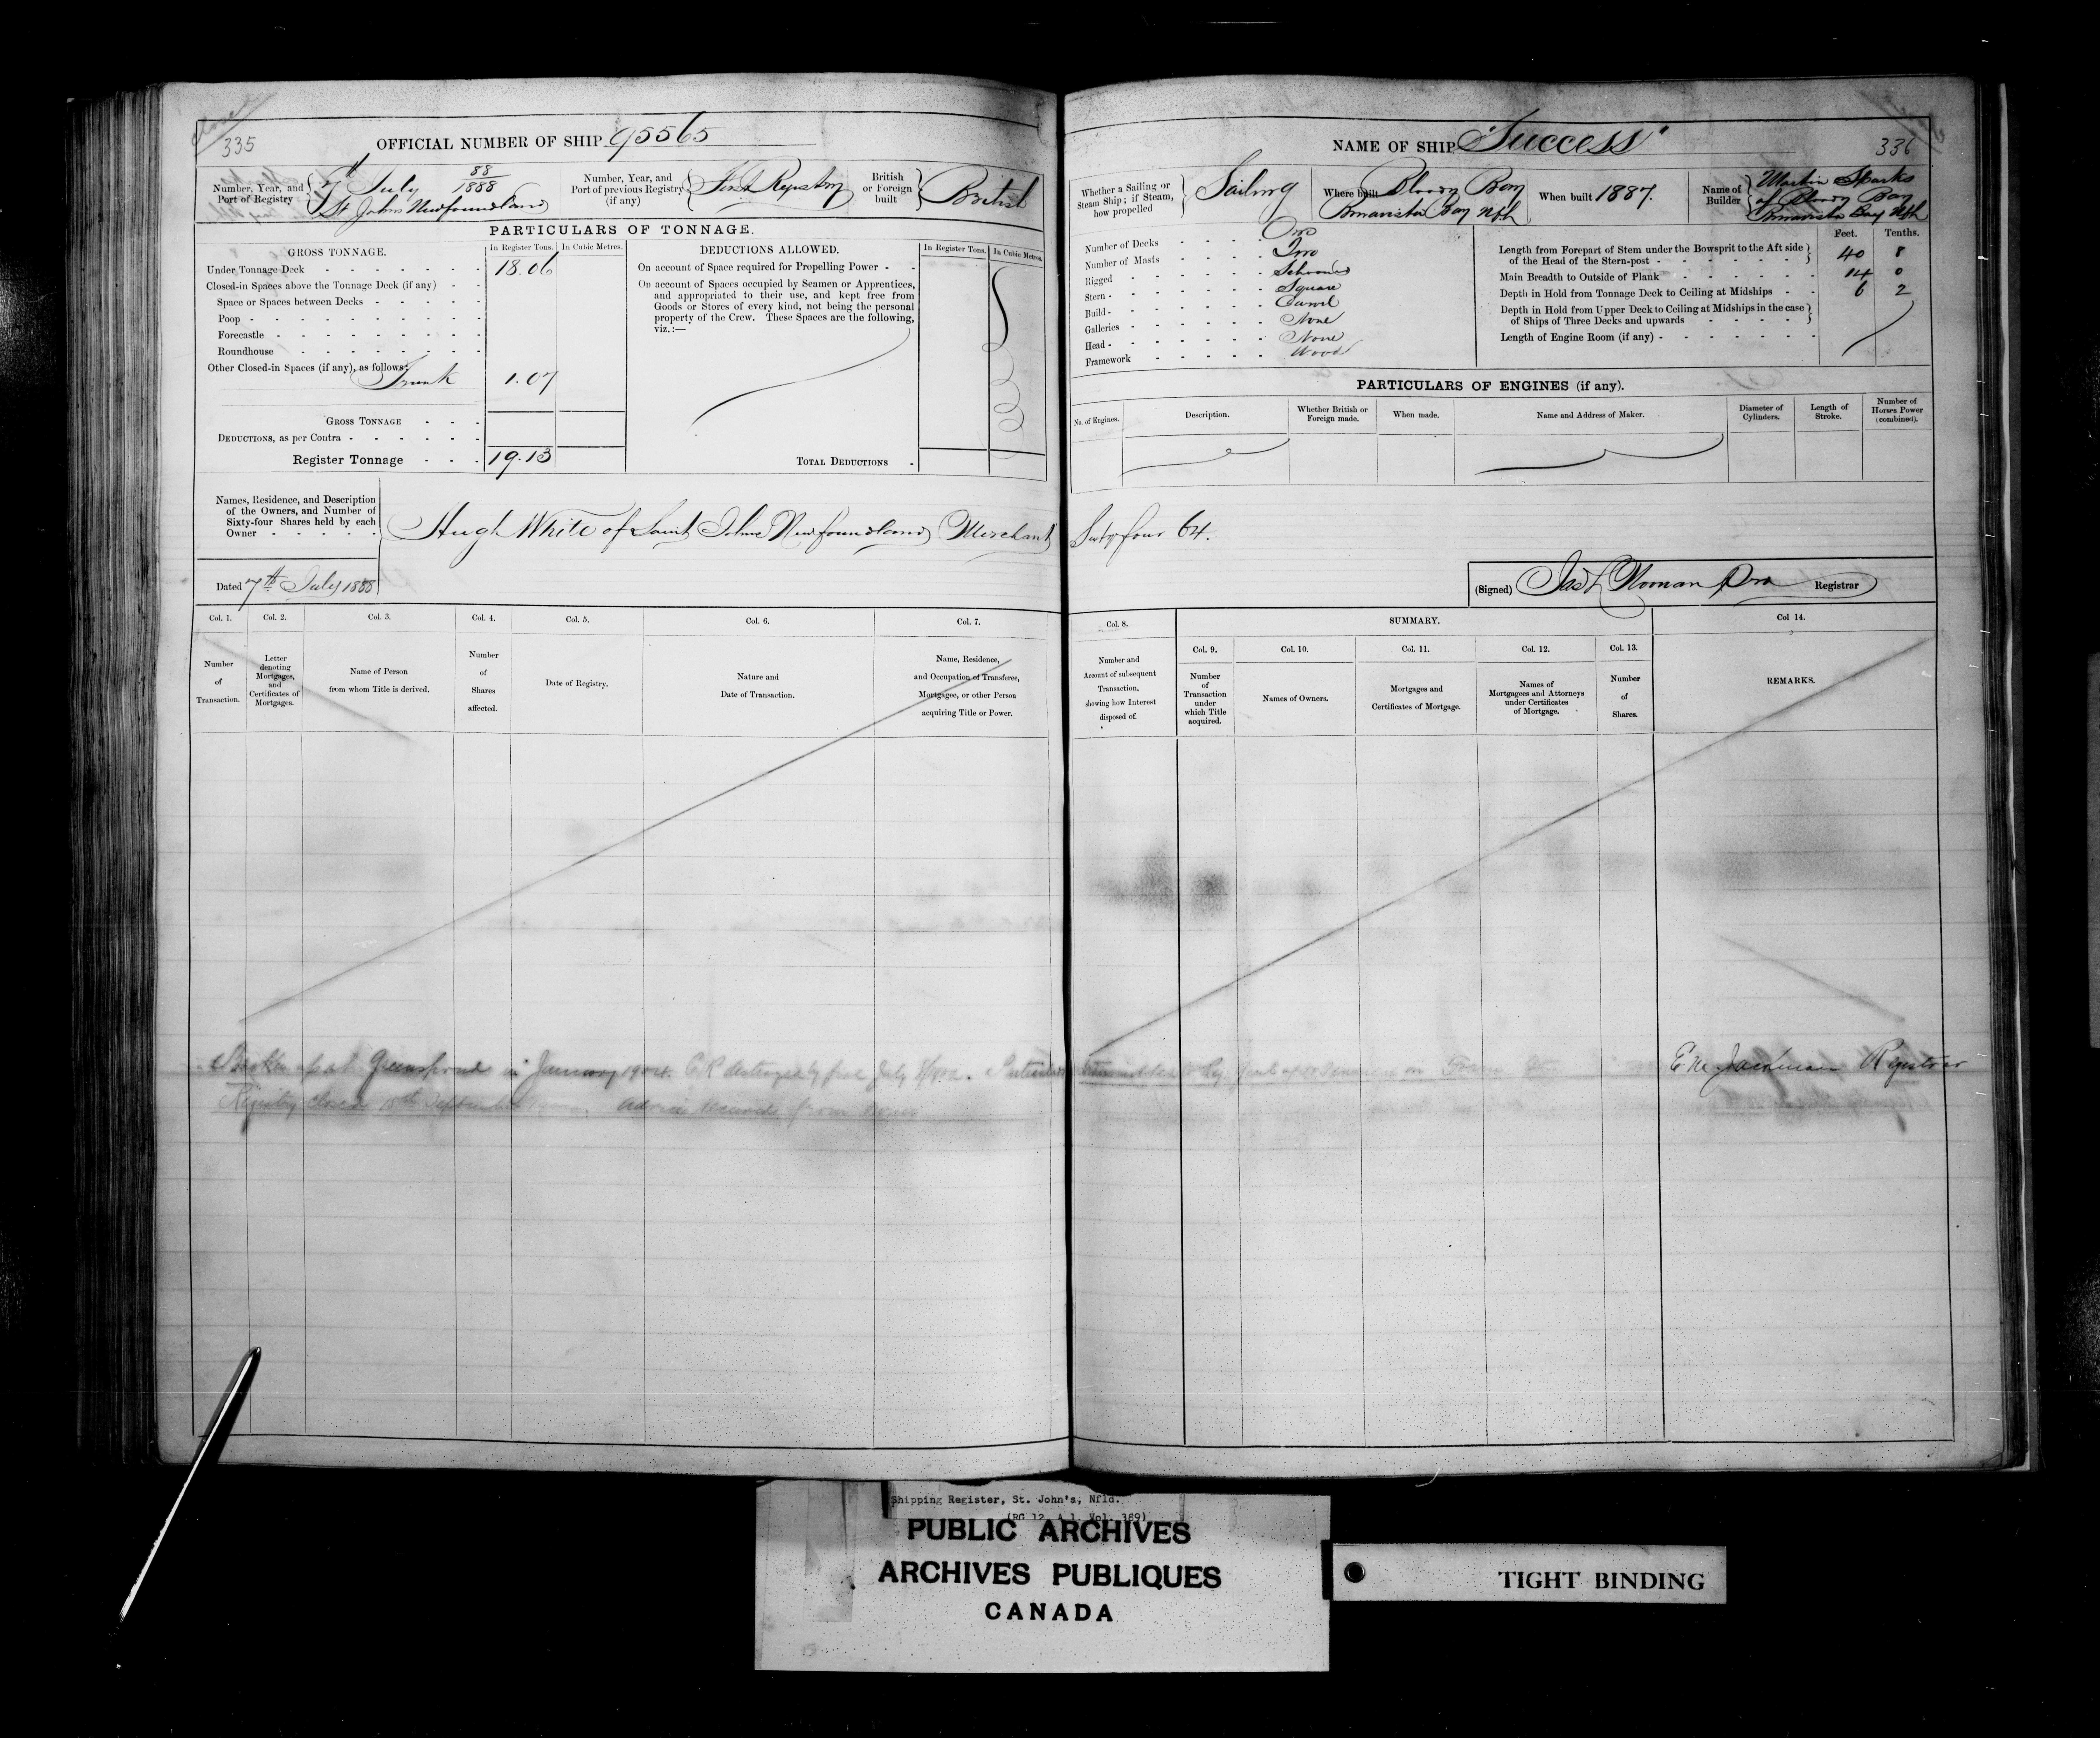 335
OFFICIAL NUMBER OF SHIP 95565
Number, Year, and Port of Registry
88/1888
7th July
St Johns Newfoundland
Number, Year, and Port of previous Registry (if any)
First Registry
British or Foreign built
British
PARTICULARS OF TONNAGE.
GROSS TONNAGE.
In Register Tons.
In Cubic Metres.
DEDUCTIONS ALLOWED.
In Register Tons.
In Cubic Metres.
Under Tonnage Deck - 18.06
Closed-in Spaces above the Tonnage Deck (if any) -
Space or Spaces between Decks -
Poop -
Forecastle -
Roundhouse -
Other Closed-in Spaces (if any), as follows:
Trunk 1.07
GROSS TONNAGE -
DEDUCTIONS, as per Contra -
Register Tonnage - 19.13
On account of Space required for Propelling Power -
On account of Spaces occupied by Seamen or Apprentices,
and appropriated to their use, and kept free from
Goods or Stores of every kind, not being the personal
property of the Crew. These Spaces are the following,
viz.:—
TOTAL DEDUCTIONS -
Names, Residence, and Description
of the Owners, and Number of
Sixty-four Shares held by each
Owner -
Hugh White of Saint Johns Newfoundland Merchant
Dated 7th July 1888
Col. 1.
Number of Transaction.
Col. 2.
Letter denoting Mortgages, and Certificates of Mortgages.
Col. 3.
Name of Person from whom Title is derived.
Col. 4.
Number of Shares affected.
Col. 5.
Date of Registry.
Col. 6.
Nature and Date of Transaction.
Col. 7.
Name, Residence, and Occupation of Transferee, Mortgagee, or other Person acquiring Title or Power.
Broken up at Greenspond in January 1904. C.R destroyed by fire July 8/92.
Registry closed September Advice received from owner
NAME OF SHIP "Success"
336
Whether a Sailing or Steam Ship; if Steam, how propelled
Sailing
Where built
Bloody Bay
Bonavista Bay Nfld
When built 1887.
Name of Builder
Martin Sparks
of Bloody Bay
Bonavista Bay Nfld
Number of Decks - One
Number of Masts - Two
Rigged - Schooner
Stern - Square
Build - Carvel
Galleries - None
Head - None
Framework - Wood
Feet.
Tenths.
Length from Forepart of Stem under the Bowsprit to the Aft side
of the Head of the Stern-post - 40 8
Main Breadth to Outside of Plank - 14 0
Depth in Hold from Tonnage Deck to Ceiling at Midships - 6 2
Depth in Hold from Upper Deck to Ceiling at Midships in the case
of Ships of Three Decks and upwards -
Length of Engine Room (if any) -
PARTICULARS OF ENGINES (if any).
No. of Engines.
Description.
Whether British or Foreign made.
When made.
Name and Address of Maker.
Diameter of Cylinders.
Length of Stroke.
Number of Horses Power (combined).
Sixty four 64.
(Signed) Jas L Noonan Pro Registrar
Col. 8.
Number and Account of subsequent Transaction, showing how Interest disposed of.
SUMMARY.
Col. 9.
Number of Transaction under which Title acquired.
Col. 10.
Names of Owners.
Col. 11.
Mortgages and Certificates of Mortgage.
Col. 12.
Names of Mortgagees and Attorneys under Certificates of Mortgage.
Col. 13.
Number of Shares.
Col 14.
REMARKS.
Registrar
Shipping Register, St. John's, Nfld.
(RG 12, A 1, Vol. 389)
PUBLIC ARCHIVES
ARCHIVES PUBLIQUES
CANADA
TIGHT BINDING